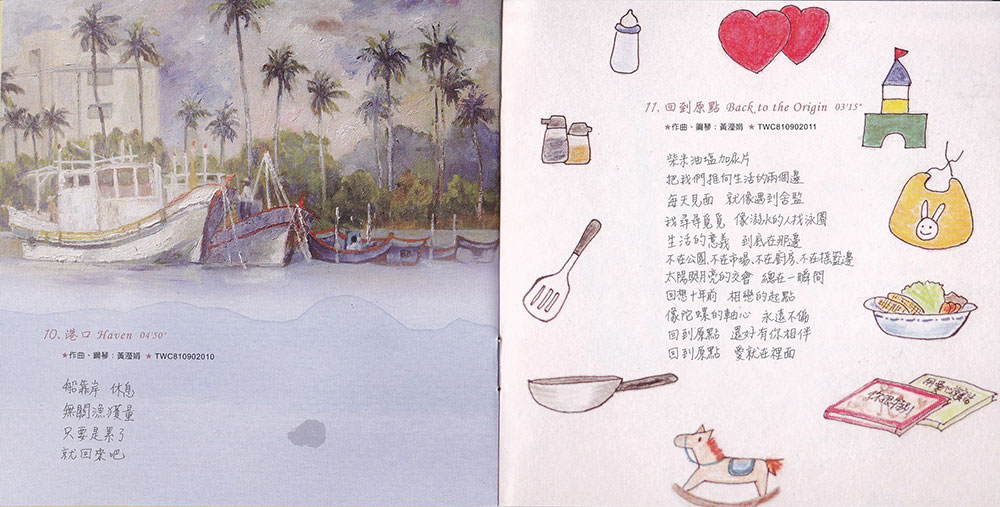 10、港口 Haven 04'50"
★作曲、鋼琴：黃瀅娟 ★ TWC810902010
船靠岸 休息
無關漁獲量
只要是累了
就回來吧
11、回到原點 Back to the Origin 03'15"
★作曲、鋼琴：黃瀅娟 ★ TWC810902011
柴米油塩加尿片
把我們推向生活的兩個邊
每天見面 就像遇到舍監
找尋尋覓覓 像溺水的人找泳圈
生活的意義 到底在那邊
不在公園、不在市場、不在廚房、不在搖籃邊
太陽與月亮的交會 總在一瞬間
回想十年前 相戀的起點
像陀螺的軸心 永遠不偏
回到原點 還好有你相伴
回到原點 愛就在裡面